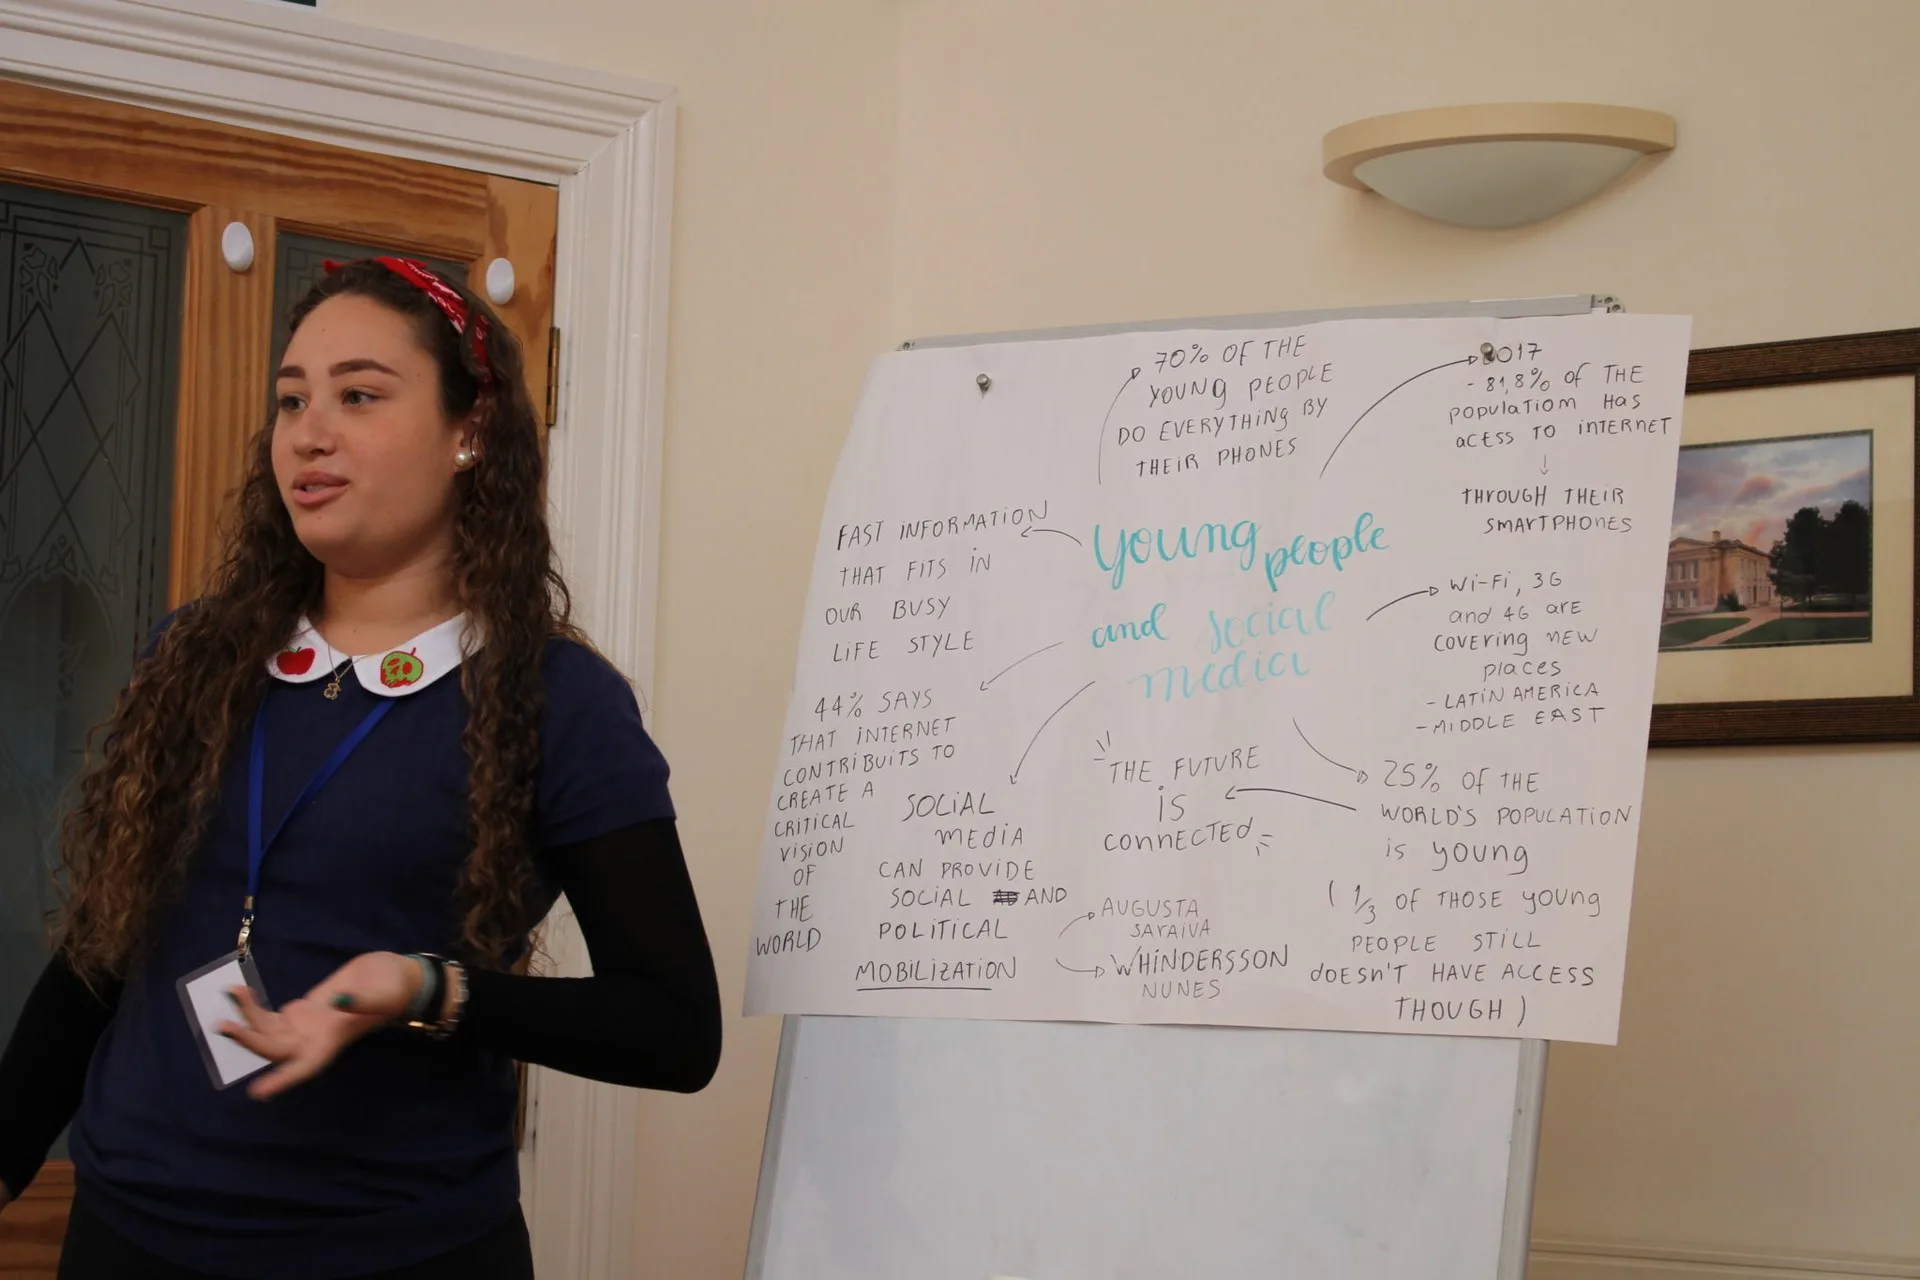 Young people
and social
media
70% OF THE
YOUNG PEOPLE
DO EVERYTHING BY
THEIR PHONES
2017
- 81,8% OF THE
POPULATIOM HAS
ACESS TO INTERNET
↓
THROUGH THEIR
SMARTPHONES
FAST INFORMATION
THAT FITS IN
OUR BUSY
LIFE STYLE
Wi-Fi, 3G
and 4G are
COVERING NEW
places
- LATIN AMERICA
- MIDDLE EAST
44% SAYS
THAT INTERNET
CONTRIBUITS TO
CREATE A
CRITICAL
VISION
OF
THE
WORLD
SOCIAL
MEDIA
CAN PROVIDE
SOCIAL AND
POLITICAL
MOBILIZATION
AUGUSTA
SARAIVA
WHINDERSSON
NUNES
THE FUTURE
IS
CONNECTED
25% OF THE
WORLD'S POPULATION
is young
( 1/3 OF THOSE YOUNG
PEOPLE STILL
doESN'T HAVE ACCESS
THOUGH )